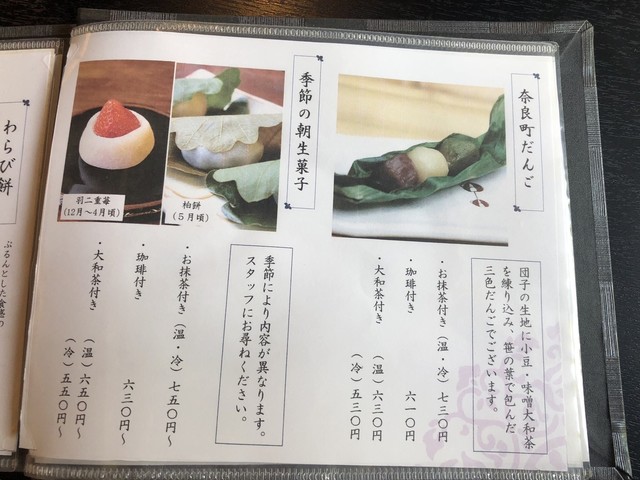 奈良町だんご
団子の生地に小豆・味噌大和茶
を練り込み、笹の葉で包んだ
三色だんごでございます。
・お抹茶付き(温・冷)七三〇円
・珈琲付き 六一〇円
・大和茶付き(温)六三〇円
(冷)五三〇円
季節の朝生菓子
羽二重苺
(12月～4月頃)
柏餅
(5月頃)
季節により内容が異なります。
スタッフにお尋ねください。
・お抹茶付き(温・冷)七五〇円～
・珈琲付き 六三〇円～
・大和茶付き(温)六五〇円～
(冷)五五〇円～
わらび餅
ぷるんとした食感の